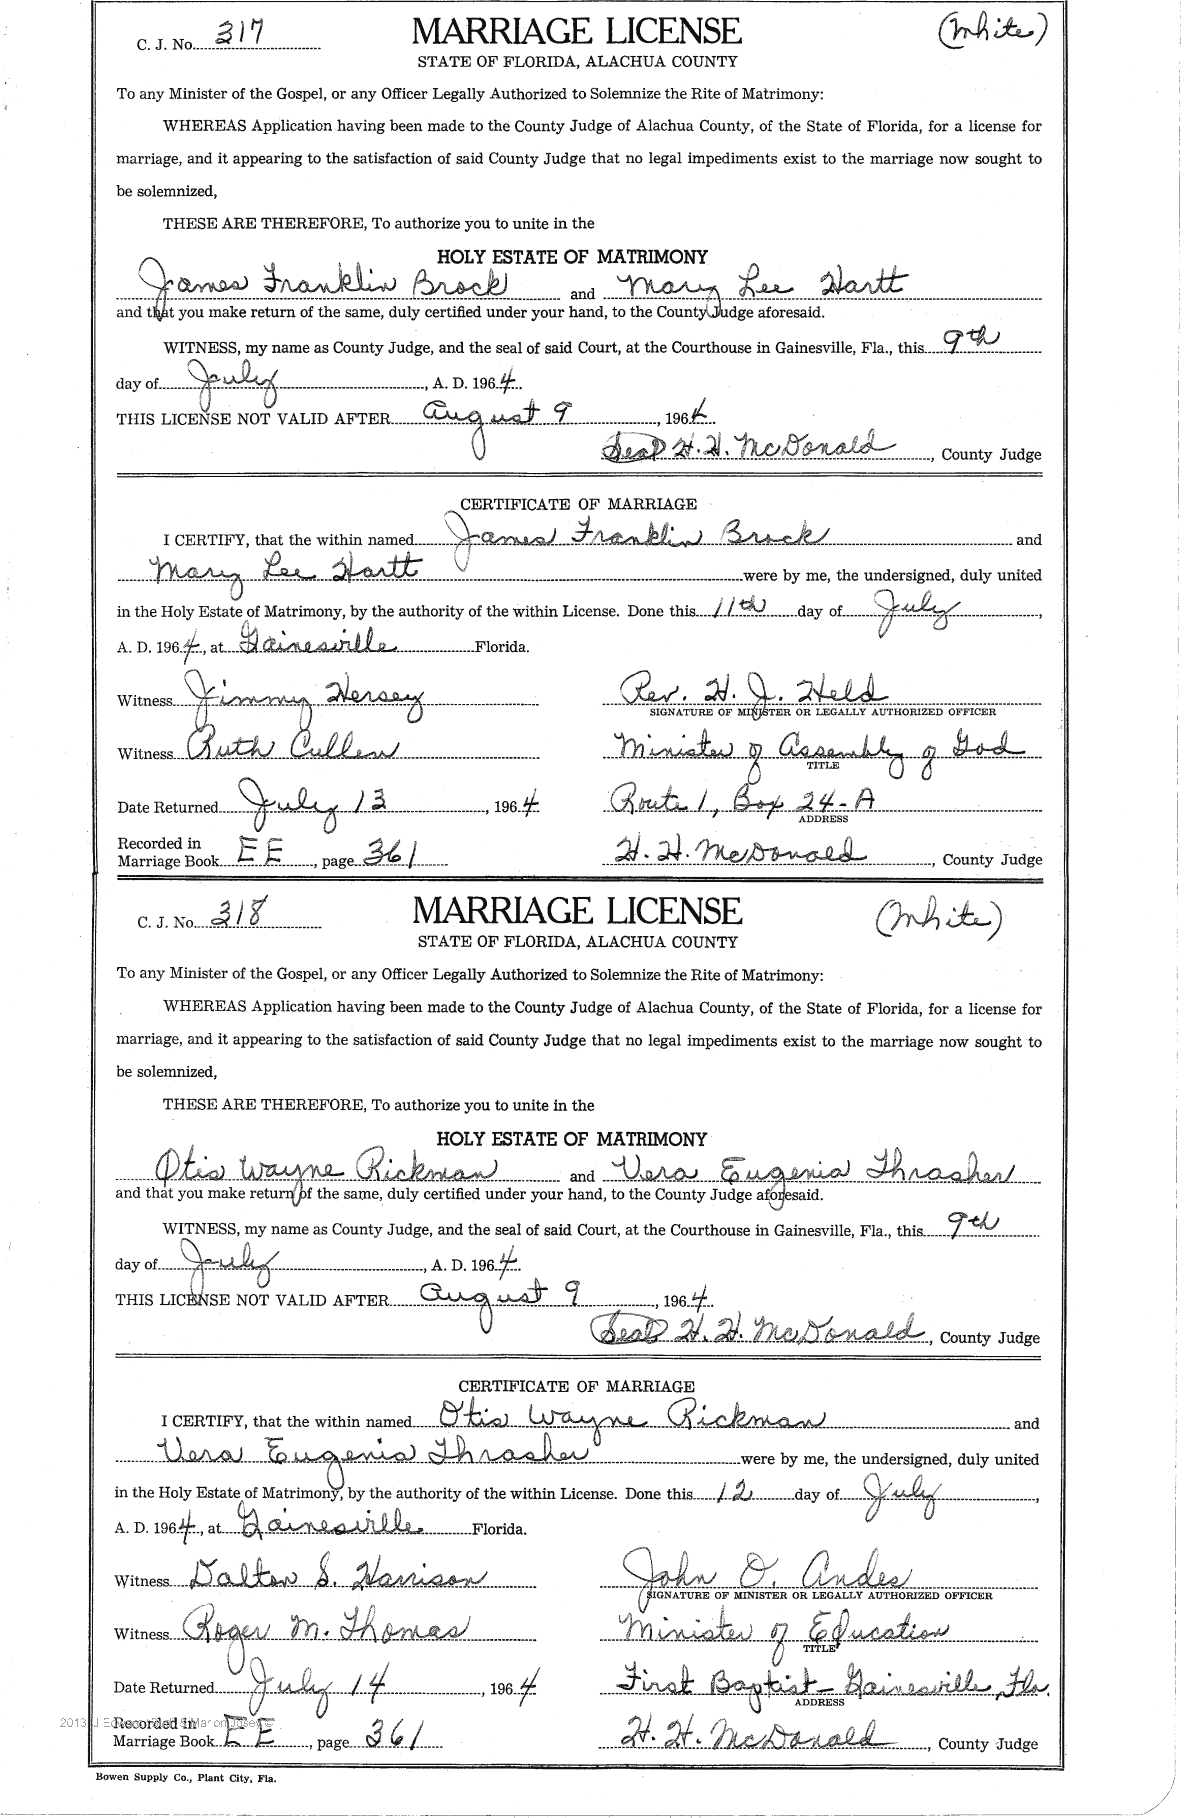 C. J. No. 317 MARRIAGE LICENSE (White)
STATE OF FLORIDA, ALACHUA COUNTY
To any Minister of the Gospel, or any Officer Legally Authorized to Solemnize the Rite of Matrimony:
WHEREAS Application having been made to the County Judge of Alachua County, of the State of Florida, for a license for
marriage, and it appearing to the satisfaction of said County Judge that no legal impediments exist to the marriage now sought to
be solemnized,
THESE ARE THEREFORE, To authorize you to unite in the
HOLY ESTATE OF MATRIMONY
James Franklin Brock and Mary Lee Hartt
and that you make return of the same, duly certified under your hand, to the County Judge aforesaid.
WITNESS, my name as County Judge, and the seal of said Court, at the Courthouse in Gainesville, Fla., this 9th
day of July, A. D. 1964.
THIS LICENSE NOT VALID AFTER August 9, 1964.
Seal H. H. McDonald, County Judge
CERTIFICATE OF MARRIAGE
I CERTIFY, that the within named James Franklin Brock and
Mary Lee Hartt were by me, the undersigned, duly united
in the Holy Estate of Matrimony, by the authority of the within License. Done this 11th day of July,
A. D. 1964, at Gainesville Florida.
Witness Jimmy Hersey Rev. H. J. Held
SIGNATURE OF MINISTER OR LEGALLY AUTHORIZED OFFICER
Witness Ruth Cullen Minister of Assembly of God
TITLE
Date Returned July 13, 1964 Route 1, Box 24-A
ADDRESS
Recorded in
Marriage Book EE, page 361 H. H. McDonald, County Judge
C. J. No. 318 MARRIAGE LICENSE (White)
STATE OF FLORIDA, ALACHUA COUNTY
To any Minister of the Gospel, or any Officer Legally Authorized to Solemnize the Rite of Matrimony:
WHEREAS Application having been made to the County Judge of Alachua County, of the State of Florida, for a license for
marriage, and it appearing to the satisfaction of said County Judge that no legal impediments exist to the marriage now sought to
be solemnized,
THESE ARE THEREFORE, To authorize you to unite in the
HOLY ESTATE OF MATRIMONY
Otis Wayne Rickman and Vera Eugenia Thrasher
and that you make return of the same, duly certified under your hand, to the County Judge aforesaid.
WITNESS, my name as County Judge, and the seal of said Court, at the Courthouse in Gainesville, Fla., this 9th
day of July, A. D. 1964.
THIS LICENSE NOT VALID AFTER August 9, 1964.
Seal H. H. McDonald, County Judge
CERTIFICATE OF MARRIAGE
I CERTIFY, that the within named Otis Wayne Rickman and
Vera Eugenia Thrasher were by me, the undersigned, duly united
in the Holy Estate of Matrimony, by the authority of the within License. Done this 12 day of July,
A. D. 1964, at Gainesville Florida.
Witness Dalton S. Harrison John O. Andes
SIGNATURE OF MINISTER OR LEGALLY AUTHORIZED OFFICER
Witness Roger M. Thomas Minister of Education
TITLE
Date Returned July 14, 1964 First Baptist - Gainesville, Fla.
ADDRESS
2013 Recorded in
Marriage Book EE, page 361 H. H. McDonald, County Judge
Bowen Supply Co., Plant City, Fla.